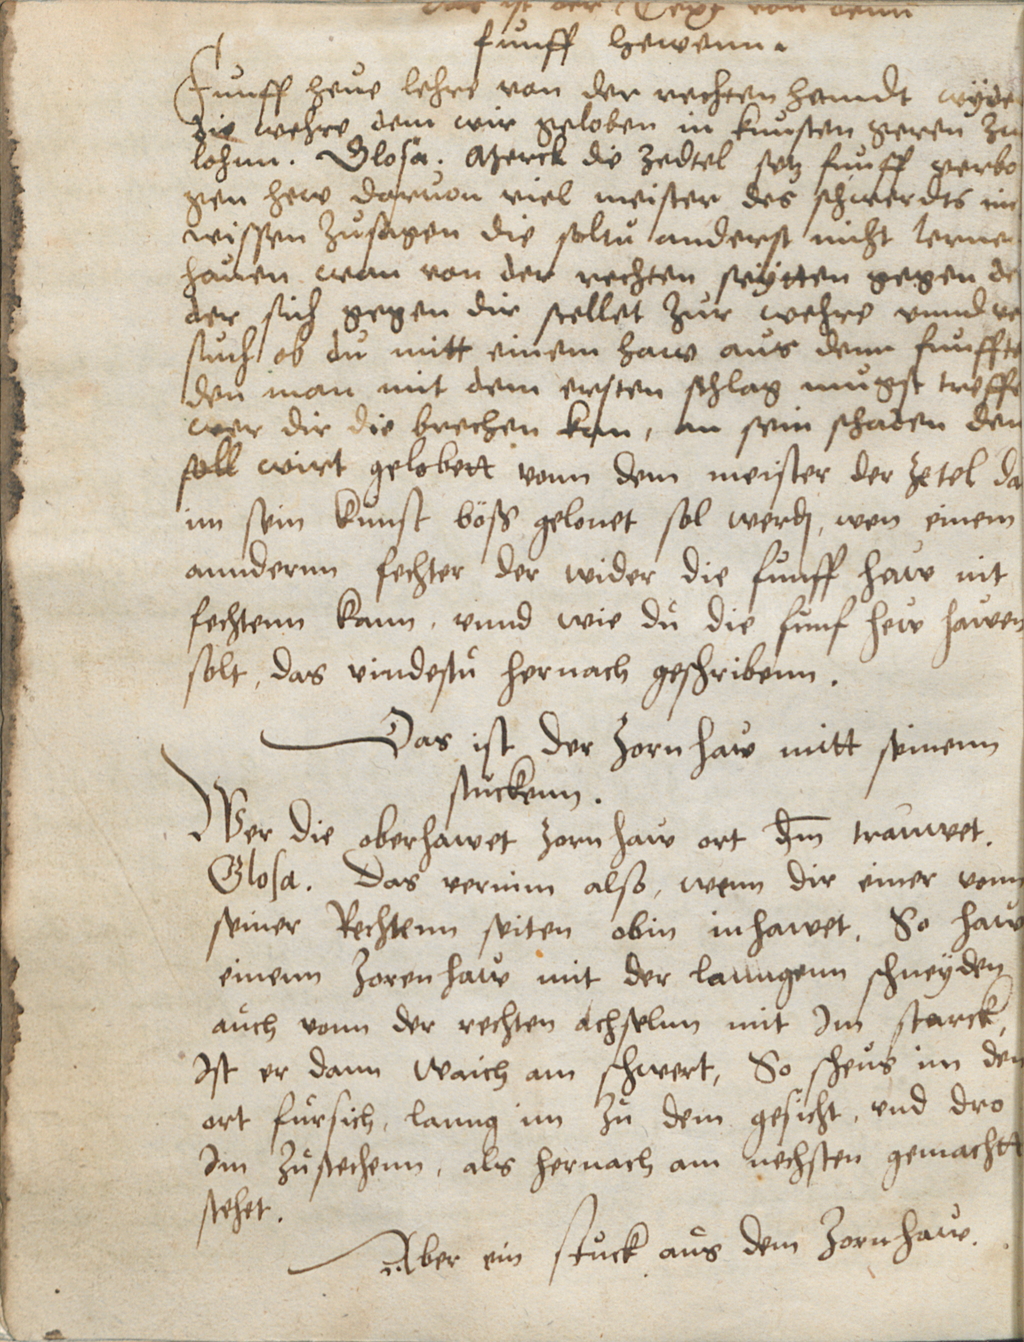 das ist der Text von denn
funff hewenn.
Funff heue lehre von der rechten handt wyde
die wehre dem wir geloben in kunsten geren zu
lohnn. Glosa. Merck die zedtel setz funff verbo
gen hew daruon viel meister des schwerdts ni
wissen zusagen die soltu anderst nicht lerne
hauen wan von der rechten seytten gegen de
der sich gegen dir stellet zur wehre vnnd ve
such ob du mitt einem haw aus denn funffte
den man mit dem ersten schlag mugst treffe
wer dir die brechen kan, an sein schaden den
soll wirt gelobett vonn dem meister der zetel da
im sein kunst böss gelonet sol werdn, wen einem
anndernn fechter der wider die funff hew nit
fechtenn kann, vnnd wie du die funf hew hawen
solt, das vindestu hernach geschribenn.
Das ist der Zornhaw mitt seinenn
stuckenn.
Wer die oberhawet zornhaw ort dim trauwet.
Glosa. Das vernim also, wenn dir einer vonn
seiner Rechtenn seiten obin inhawet, So haw
einenn zorenhaw mit der lanngenn schneyden
auch vonn der rechten achselnn mit Im starck,
Ist er dann waich am schwert, So scheus im den
ort fursich, lanng im zu dem gesicht, vnd dro
Im zustechenn, als hernach am nechsten gemachtt
stehet.
Aber ein stuck aus dem Zornhaw.